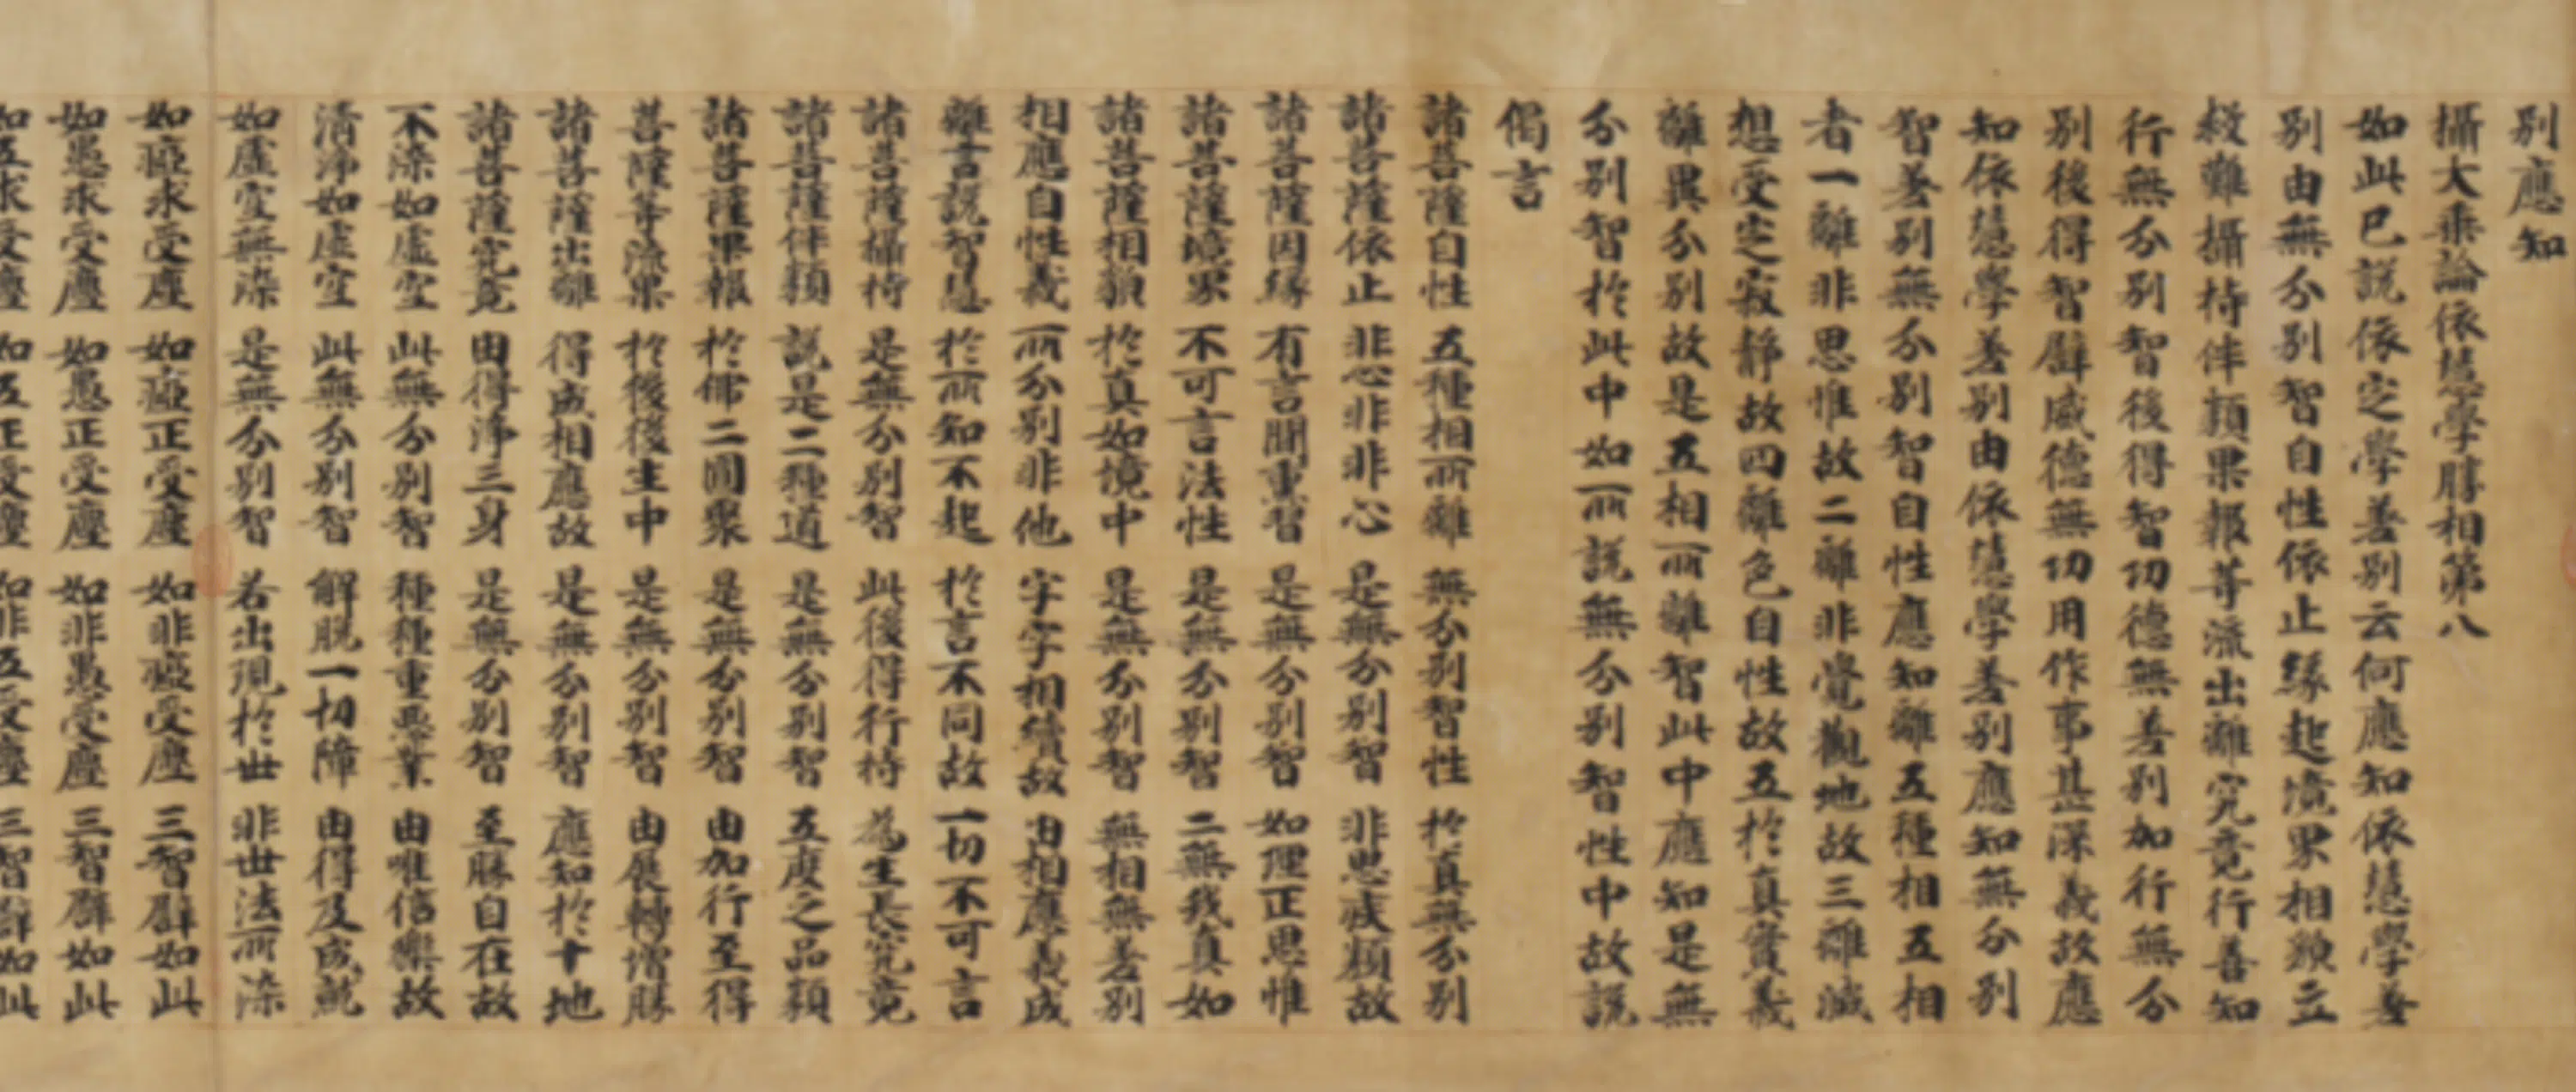 別應知
攝大乗論依慧學勝相第八
如此已說依定學差別云何應知依慧學差
別由無分別智自性依止緣起境界相類立
救難攝持伴類果報等流出離究竟行善知
行無分別智後得智功德無差別加行無分
別後得智辟威德無功用作事甚深義故應
知依慧學差別由依慧學差別應知無分別
智差別無分別智自性應知離五種相五相
者一離非思惟故二離非覺觀地故三離滅
想受定寂靜故四離色自性故五於真實義
離異分別故是五相所離智此中應知是無
分別智於此中如所說無分別智性中故說
偈言
諸菩薩自性 五種相所離 無分別智性 於真無分別
諸菩薩依止 非心非非心 是無分別智 非思疾類故
諸菩薩因緣 有言聞熏習 是無分別智 如理正思惟
諸菩薩境界 不可言法性 是無分別智 二無我真如
諸菩薩相類 於真如境中 是無分別智 無相無差別
相應自性義 所分別非他 字字相續故 由相應義成
離言說智慧 於所知不起 於言不同故 一切不可言
諸菩薩攝持 是無分別智 此後得行持 為生長究竟
諸菩薩伴類 說是二種道 是無分別智 五度之品類
諸菩薩果報 於佛二圓聚 是無分別智 由加行至得
菩薩等流果 於後後生中 是無分別智 由展轉增勝
諸菩薩出離 得成相應故 是無分別智 應知於十地
諸菩薩究竟 由得淨三身 是無分別智 至勝自在故
不染如虛空 此無分別智 種種重惡業 由唯信樂故
清淨如虛空 此無分別智 解脫一切障 由得及成就
如虛空無染 是無分別智 若出現於世 非世法所染
如瘂求受塵 如瘂正受塵 如非瘂受塵 三智辟如此
如愚求受塵 如愚正受塵 如非愚受塵 三智辟如此
如五求受塵 如五正受塵 如非五受塵 三智辟如此